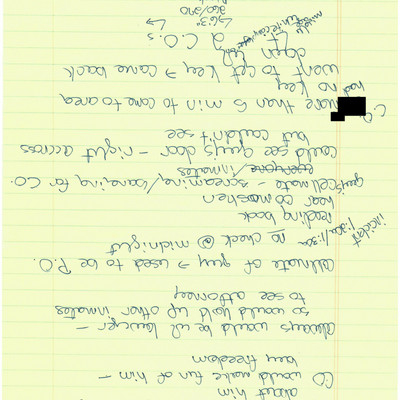 about him
CO would make fun of him –
buy freedom
always would be w/ lawyer –
so would hold up other inmates
to see attorney
cellmate of guy → used to be P.O.
no check @ midnight
incident 1:20a/1:30a
reading book
hear commotion
guy's cellmate – screaming/banging for CO.
everyone/inmates
could see guy's door – right accross
but couldn't see
C.O. more than 5 min to come to area
had no key
went to get key → came back
open cell
2 C.O.s
↳ 6'3"
260/270